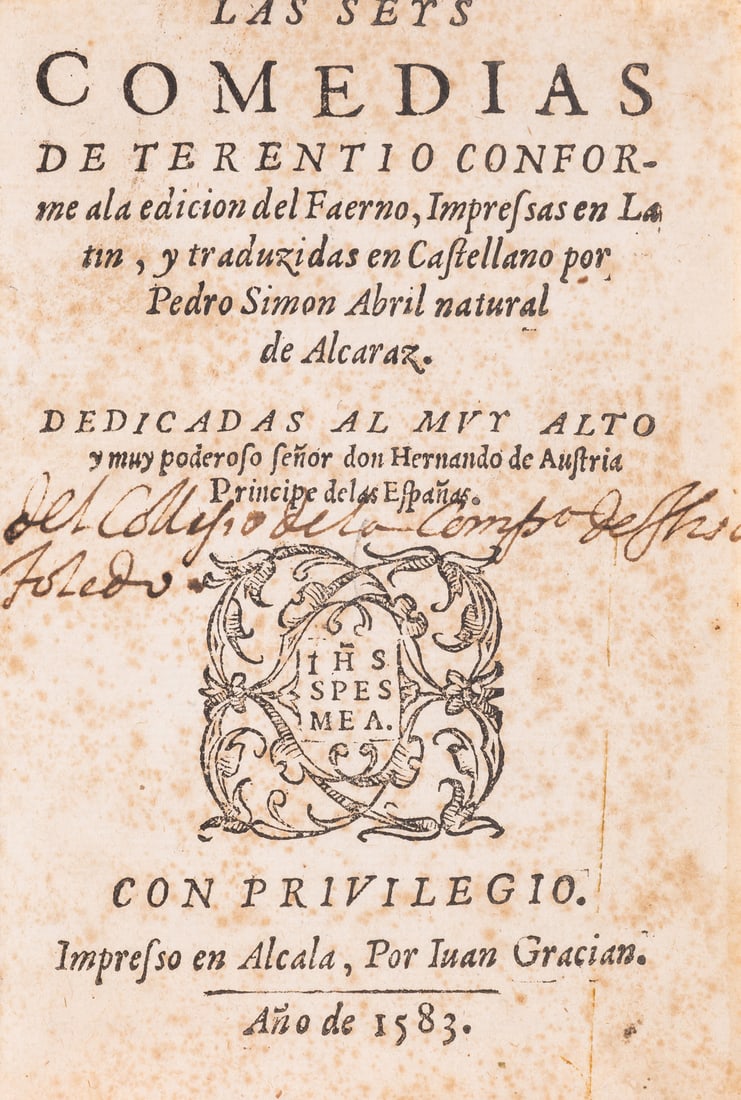 LAS SEYS
COMEDIAS
DE TERENTIO CONFOR-
me ala edicion del Faerno, Impreſſas en La
tin, y traduzidas en Caſtellano por
Pedro Simon Abril natural
de Alcaraz.
DEDICADAS AL MVY ALTO
y muy poderoſo ſeñor don Hernando de Auſtria
Principe de las Eſpañas.
del Collegio de la Compª de Jhs
Toledo.
IH̃S
SPES
MEA.
CON PRIVILEGIO.
Impreſſo en Alcala, Por Iuan Gracian.
Año de 1583.